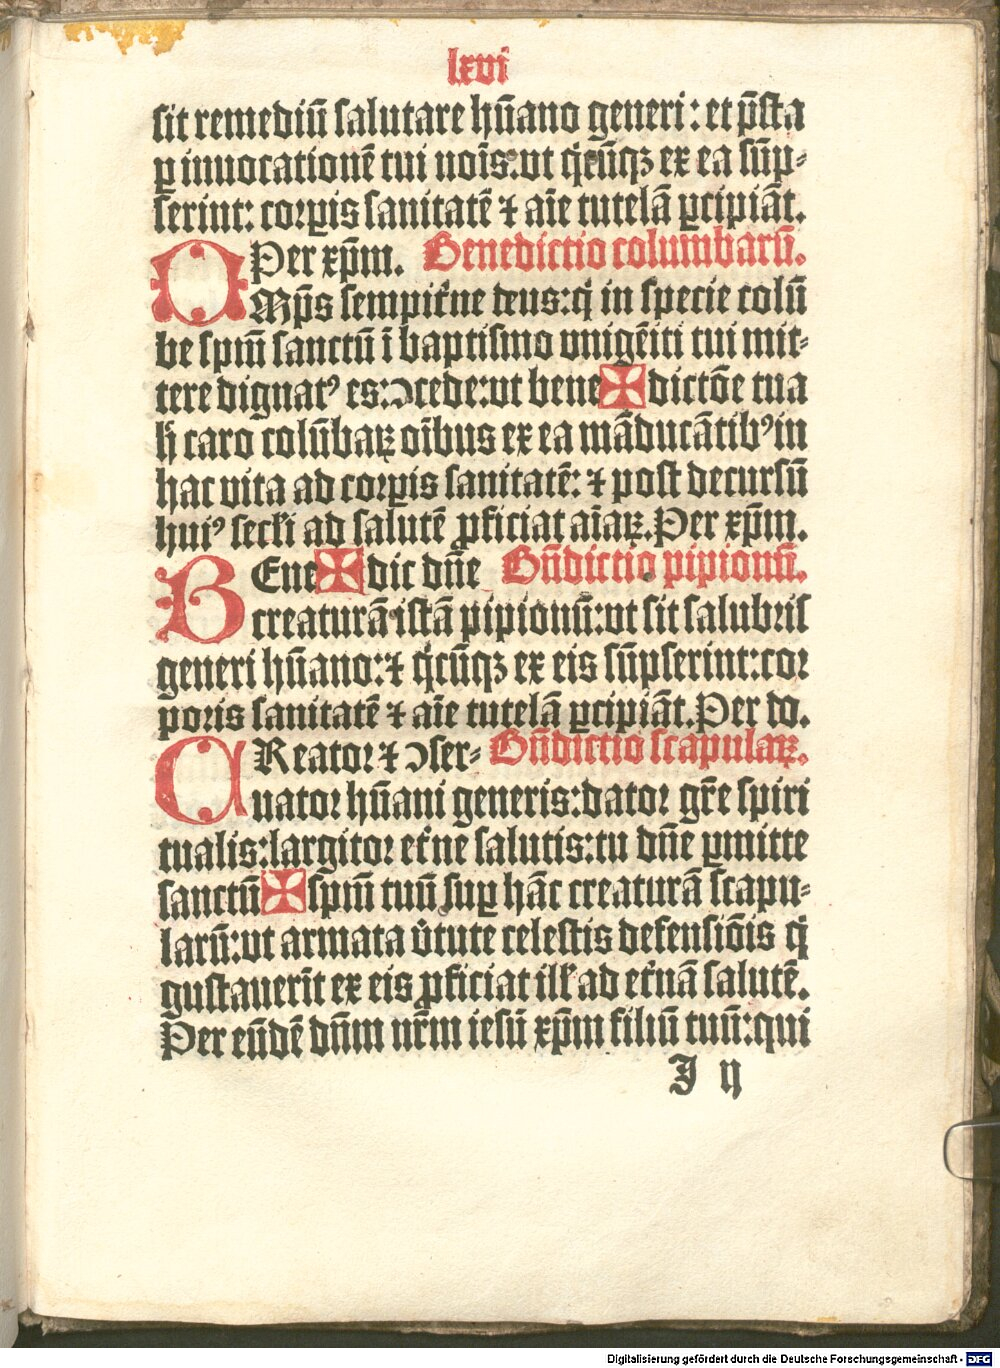 lxvi
sit remediū salutare hūano generi: et p̄sta
ꝑ inuocationē tui noīs:vt q̇cūqꝫ ex ea sūp-
serint: corꝑis sanitatē ⁊ aīe tutelā ꝑcipiāt.
Per xp̄m. Benedictio columbarū.
OMp̄s sempiťne deus:q̇ in specie colū
be sp̄m̄ sanctū ī baptismo vnigēiti tui mit-
tere dignatꝰ es:ↄcede:vt bene✠dictōe tua
ħ caro colūbaꝝ oībus ex ea māducātibꝰ in
hac vita ad corꝑis sanitatē: ⁊ post decursū
huiꝰ secťi ad salutē ꝓficiat aīaꝝ. Per xp̄m.
BEne✠dic dn̄e Bn̄dictio pipionū.
creaturā istā pipionū:vt sit salubris
generi hūano:⁊ q̇cūqꝫ ex eis sūpserint:cor
poris sanitatē ⁊ aīe tutelā ꝑcipiāt. Per do.
CReator ⁊ ↄser- Bn̄dictio scapulaꝝ.
uator hūani generis:dator gr̄e spiri
tualis:largitor eťne salutis:tu dn̄e ꝑmitte
sanctū✠sp̄m̄ tuū suꝑ hāc creaturā scapu-
larū:vt armata v̓tute celestis defensiōis q̇
gustauerīt ex eis ꝓficiat ill̓ ad eťnā salutē.
Per eūdē dn̄m nr̄m iesū xp̄m filiū tuū:qui
I ij
Digitalisierung gefördert durch die Deutsche Forschungsgemeinschaft - DFG